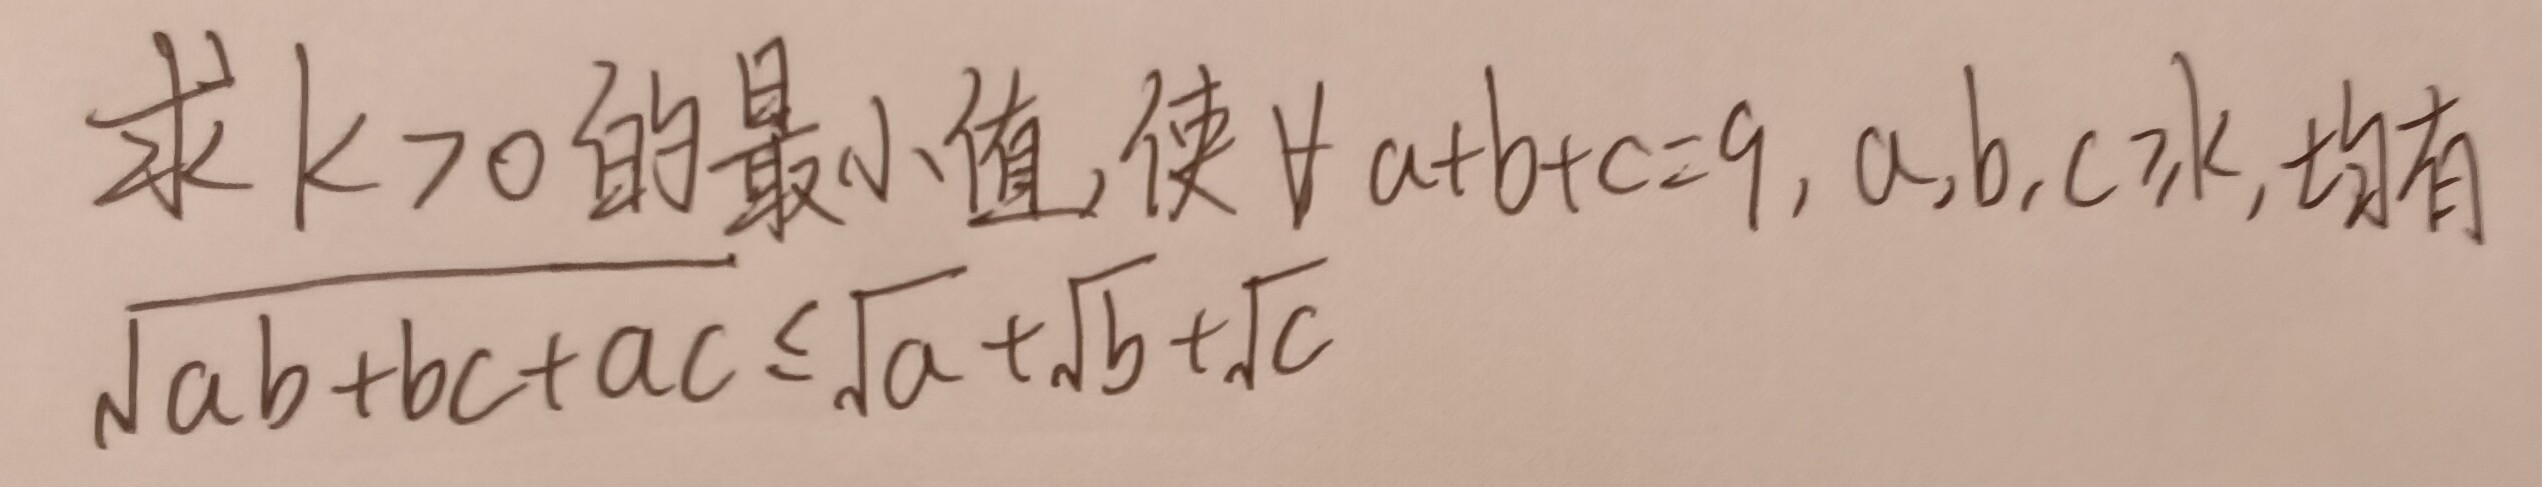 求k>0的最小值,使∀a+b+c=9,a,b,c≥k,均有
√(ab+bc+ac)≤√a+√b+√c